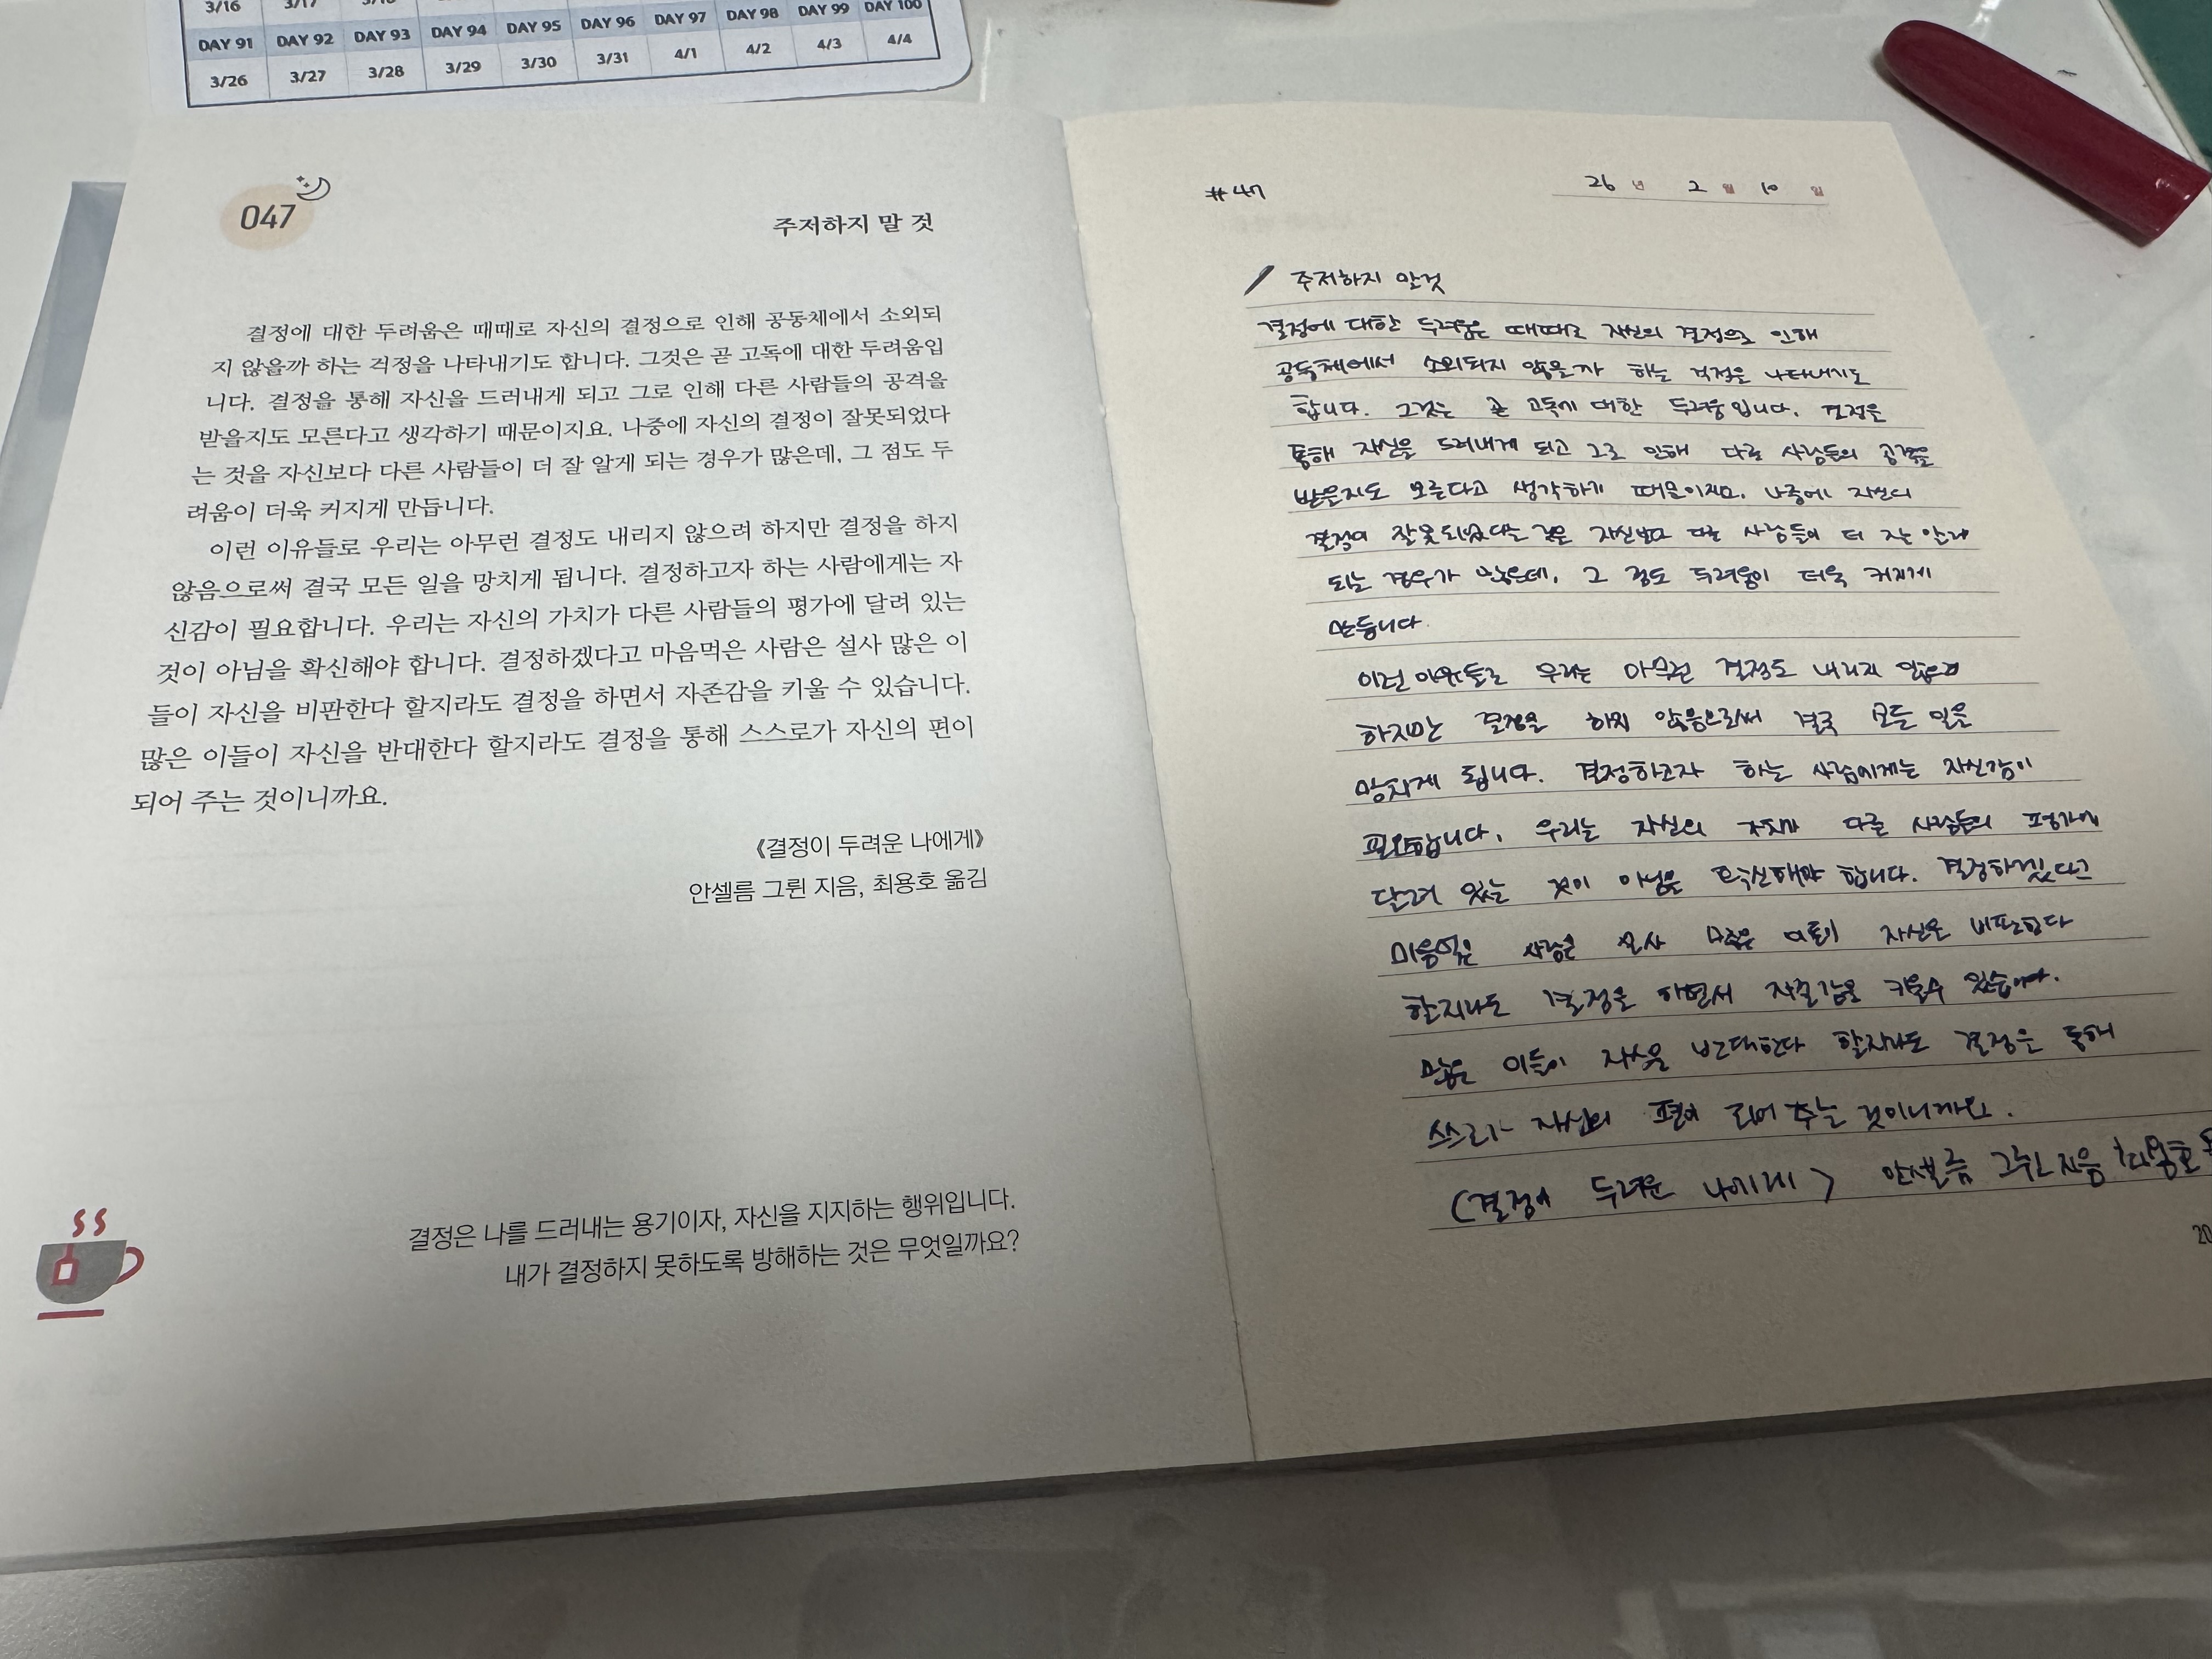 3/16 3/17 3/18
DAY 91 DAY 92 DAY 93 DAY 94 DAY 95 DAY 96 DAY 97 DAY 98 DAY 99 DAY 100
3/26 3/27 3/28 3/29 3/30 3/31 4/1 4/2 4/3 4/4
047
주저하지 말 것
결정에 대한 두려움은 때때로 자신의 결정으로 인해 공동체에서 소외되
지 않을까 하는 걱정을 나타내기도 합니다. 그것은 곧 고독에 대한 두려움입
니다. 결정을 통해 자신을 드러내게 되고 그로 인해 다른 사람들의 공격을
받을지도 모른다고 생각하기 때문이지요. 나중에 자신의 결정이 잘못되었다
는 것을 자신보다 다른 사람들이 더 잘 알게 되는 경우가 많은데, 그 점도 두
려움이 더욱 커지게 만듭니다.
이런 이유들로 우리는 아무런 결정도 내리지 않으려 하지만 결정을 하지
않음으로써 결국 모든 일을 망치게 됩니다. 결정하고자 하는 사람에게는 자
신감이 필요합니다. 우리는 자신의 가치가 다른 사람들의 평가에 달려 있는
것이 아님을 확신해야 합니다. 결정하겠다고 마음먹은 사람은 설사 많은 이
들이 자신을 비판한다 할지라도 결정을 하면서 자존감을 키울 수 있습니다.
많은 이들이 자신을 반대한다 할지라도 결정을 통해 스스로가 자신의 편이
되어 주는 것이니까요.
《결정이 두려운 나에게》
안셀름 그륀 지음, 최용호 옮김
결정은 나를 드러내는 용기이자, 자신을 지지하는 행위입니다.
내가 결정하지 못하도록 방해하는 것은 무엇일까요?
#47
26 년 2 월 10 일
주저하지 말것
결정에 대한 두려움은 때때로 자신의 결정으로 인해
공동체에서 소외되지 않을까 하는 걱정을 나타내기도
합니다. 그것은 곧 고독에 대한 두려움입니다. 결정을
통해 자신을 드러내게 되고 그로 인해 다른 사람들의 공격을
받을지도 모른다고 생각하기 때문이지요. 나중에 자신의
결정이 잘못되었다는 것을 자신보다 다른 사람들이 더 잘 알게
되는 경우가 많은데, 그 점도 두려움이 더욱 커지게
만듭니다
이런 이유들로 우리는 아무런 결정도 내리지 않으려
하지만 결정을 하지 않음으로써 결국 모든 일을
망치게 됩니다. 결정하고자 하는 사람에게는 자신감이
필요합니다. 우리는 자신의 가치가 다른 사람들의 평가에
달려 있는 것이 아님을 확신해야 합니다. 결정하겠다고
마음먹은 사람은 설사 많은 이들이 자신을 비판한다
할지라도 결정을 하면서 자존감을 키울수 있습니다.
많은 이들이 자신을 반대한다 할지라도 결정을 통해
스스로가 자신의 편이 되어 주는 것이니까요.
(결정이 두려운 나에게> 안셀름 그륀 지음 최용호
20